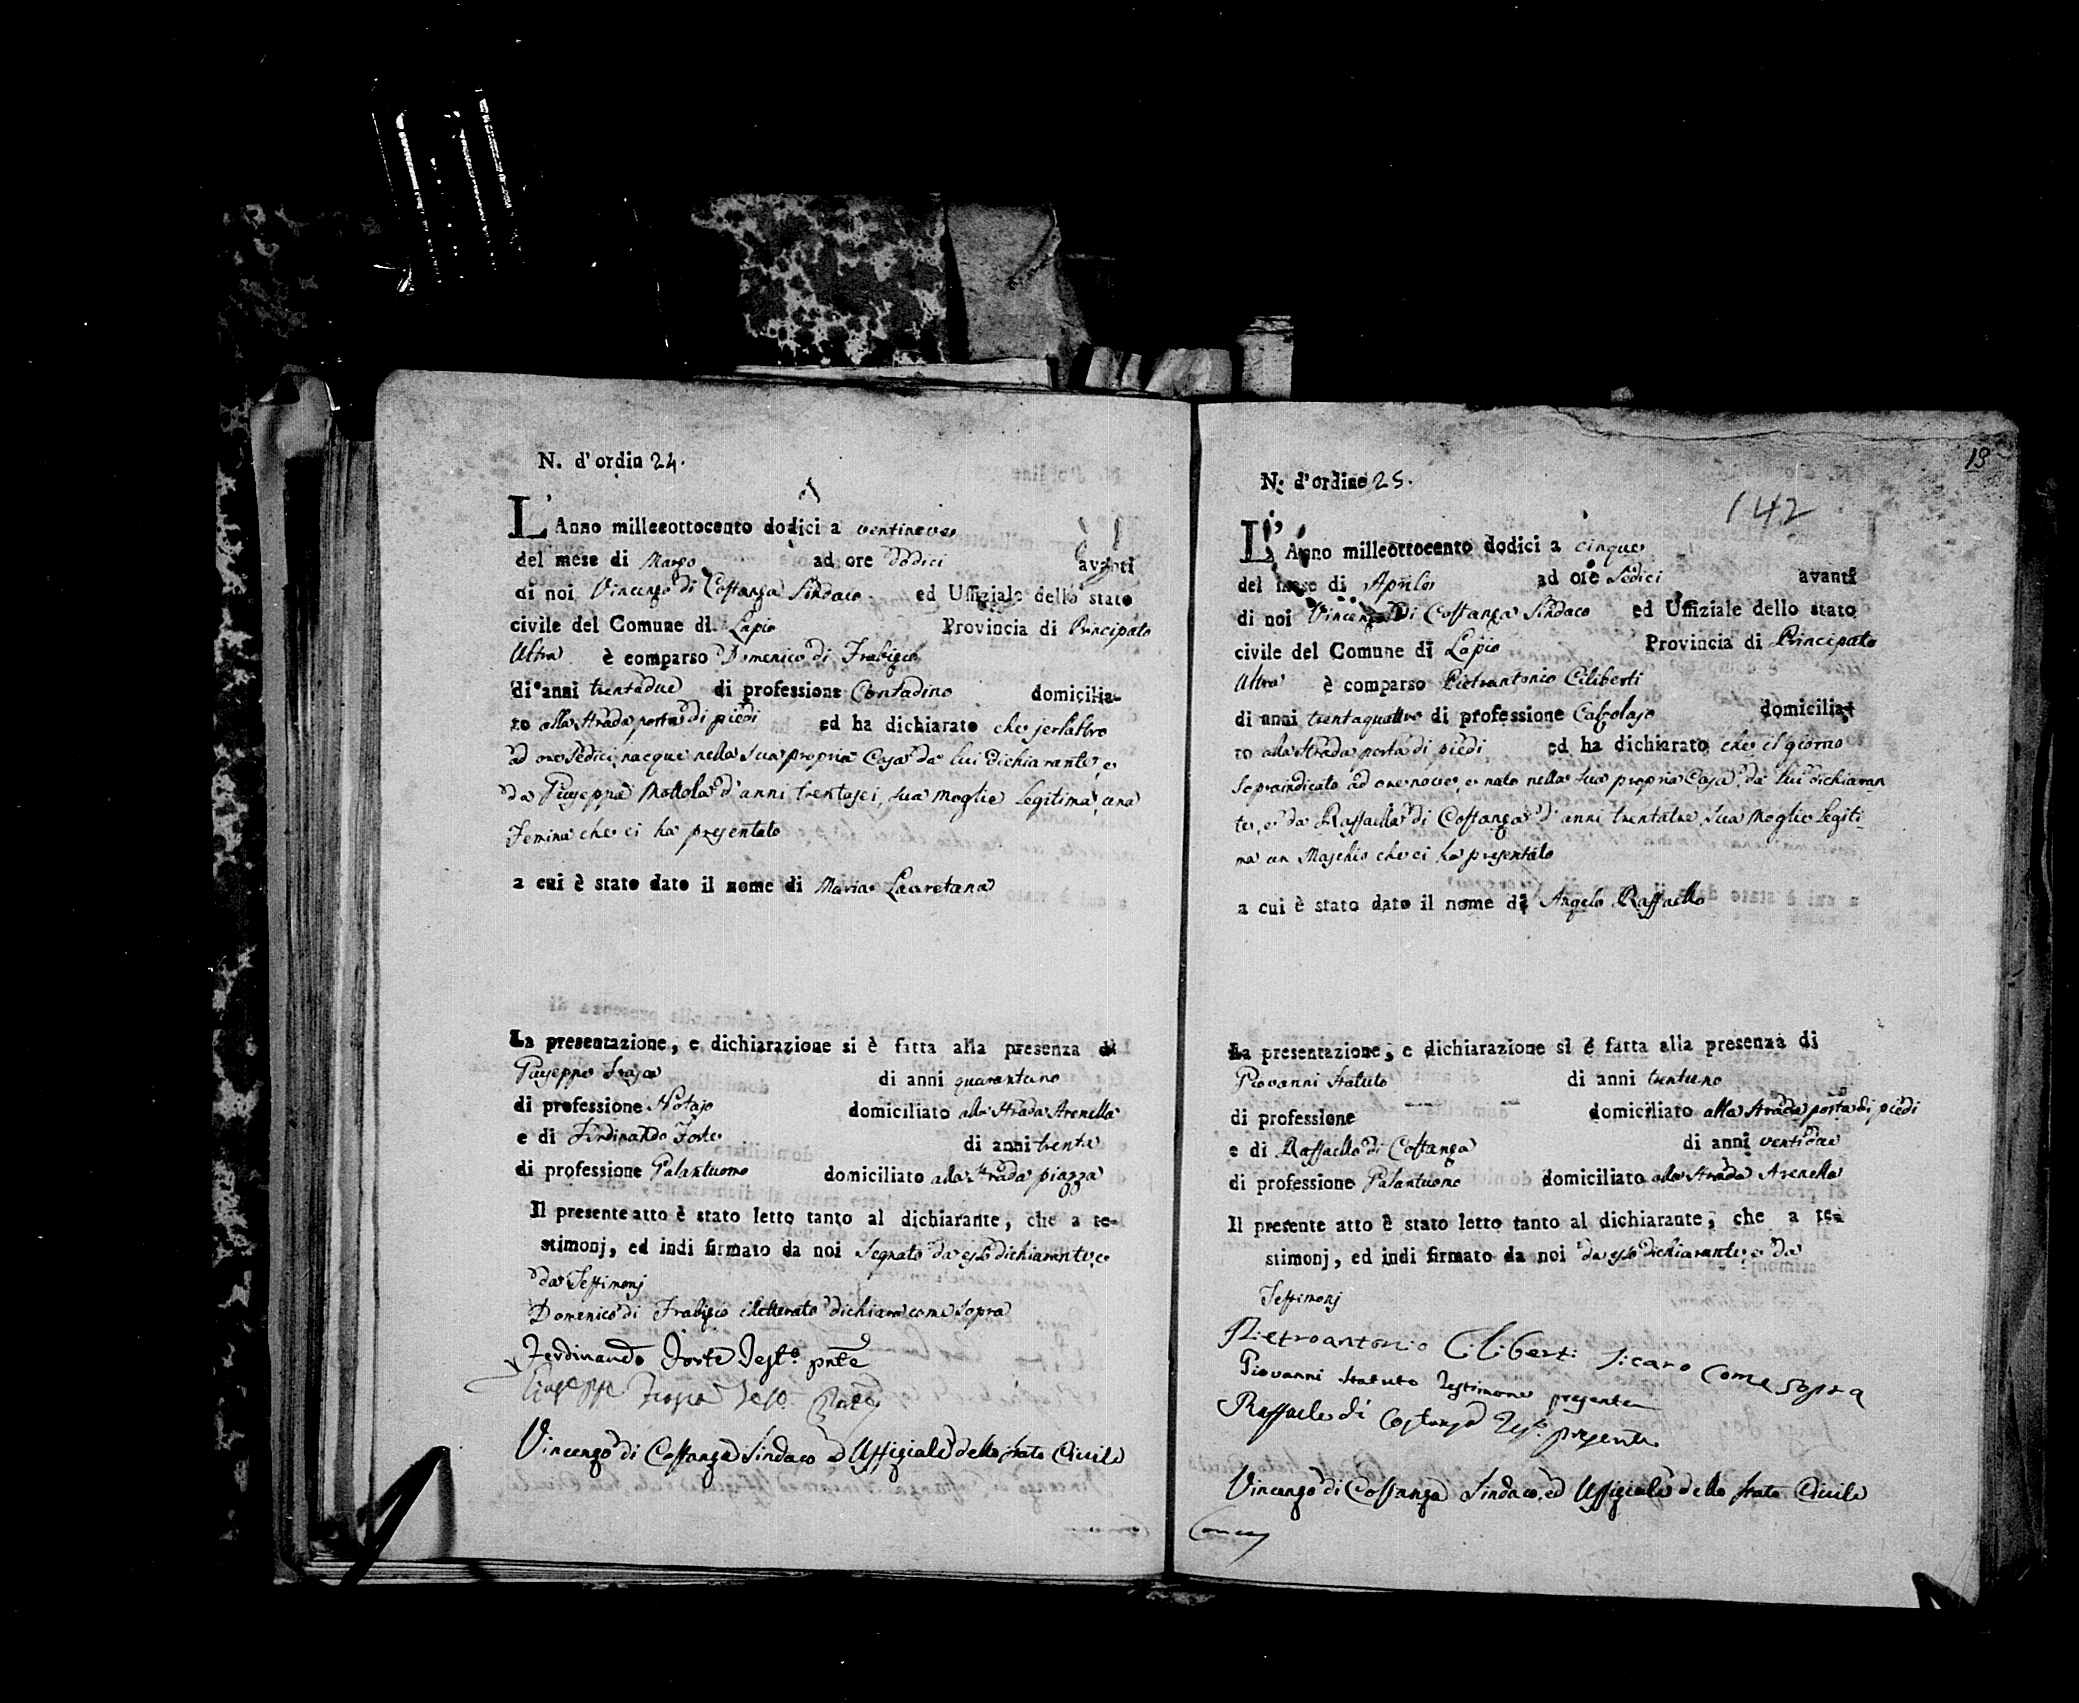 N. d'ordin 24.
L'Anno milleottocento dodici a ventinove
del mese di Marzo ad ore dodici avanti
di noi Vincenzo di Costanza Sindaco ed Uffiziale dello stato
civile del Comune di Lapio Provincia di Principato
Ultra è comparso Domenico di
di anni trentadue di professione Contadino domicilia-
to alla strada porta di piedi ed ha dichiarato che jerlaltro
ad ore sedici nacque nella sua propria Casa da lui dichiarante, e
da Giuseppa Mottola d'anni trentasei, sua moglie legitima, una
Femina che ci ha presentato
a cui è stato dato il nome di Maria Lauretana
La presentazione, e dichiarazione si è fatta alla presenza di
Giuseppe di anni quarantuno
di professione Notajo domiciliato alla strada Arenella
e di Ferdinando Forte di anni trenta
di professione Galantuomo domiciliato alla strada piazza
Il presente atto è stato letto tanto al dichiarante, che a te-
stimonj, ed indi firmato da noi Segnato da esso dichiarante, e
da Testimonj
Domenico di illetterato dichiara come sopra
Ferdinando Forte Test.o pnte
Giuseppe
Vincenzo di Costanza Sindaco ed Uffiziale dello stato Civile
13
142
N. d'ordine 25.
L'Anno milleottocento dodici a cinque
del mese di Aprile ad ore sedici avanti
di noi Vincenzo Di Costanza Sindaco ed Uffiziale dello stato
civile del Comune di Lapio Provincia di Principato
Ultra è comparso Pietrantonio Ciliberti
di anni trentaquattro di professione Calzolajo domicilia-
to alla strada porta di piedi ed ha dichiarato che il giorno
sopraindicato ad ore nove, è nato nella sua propria Casa, da lui dichiaran
te, e da Raffaella di Costanza d'anni trentatre, sua Moglie legiti-
ma un Maschio che ci ha presentato
a cui è stato dato il nome di Angelo Raffaello
La presentazione, e dichiarazione si è fatta alla presenza di
Giovanni Statuto di anni trentuno
di professione domiciliato alla strada porta di piedi
e di Raffaello di Costanza di anni ventidue
di professione Galantuomo domiciliato alla strada Arenella
Il presente atto è stato letto tanto al dichiarante, che a te-
stimonj, ed indi firmato da noi da esso dichiarante, e da
Testimonj
Pietroantonio Ciliberti come sopra
Giovanni Statuto Testimone presente
Raffaele di Costanza Tes. presente
Vincenzo di Costanza Sindaco, ed Uffiziale dello stato Civile